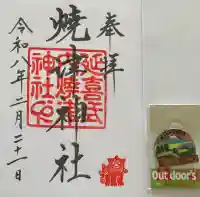 奉拝
焼津神社
延喜式
神社
令和八年二月二十一日
Outdoor's